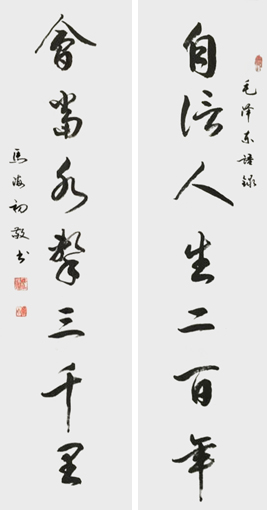 毛泽东语录
自信人生二百年
會當水擊三千里
馬海初敬书